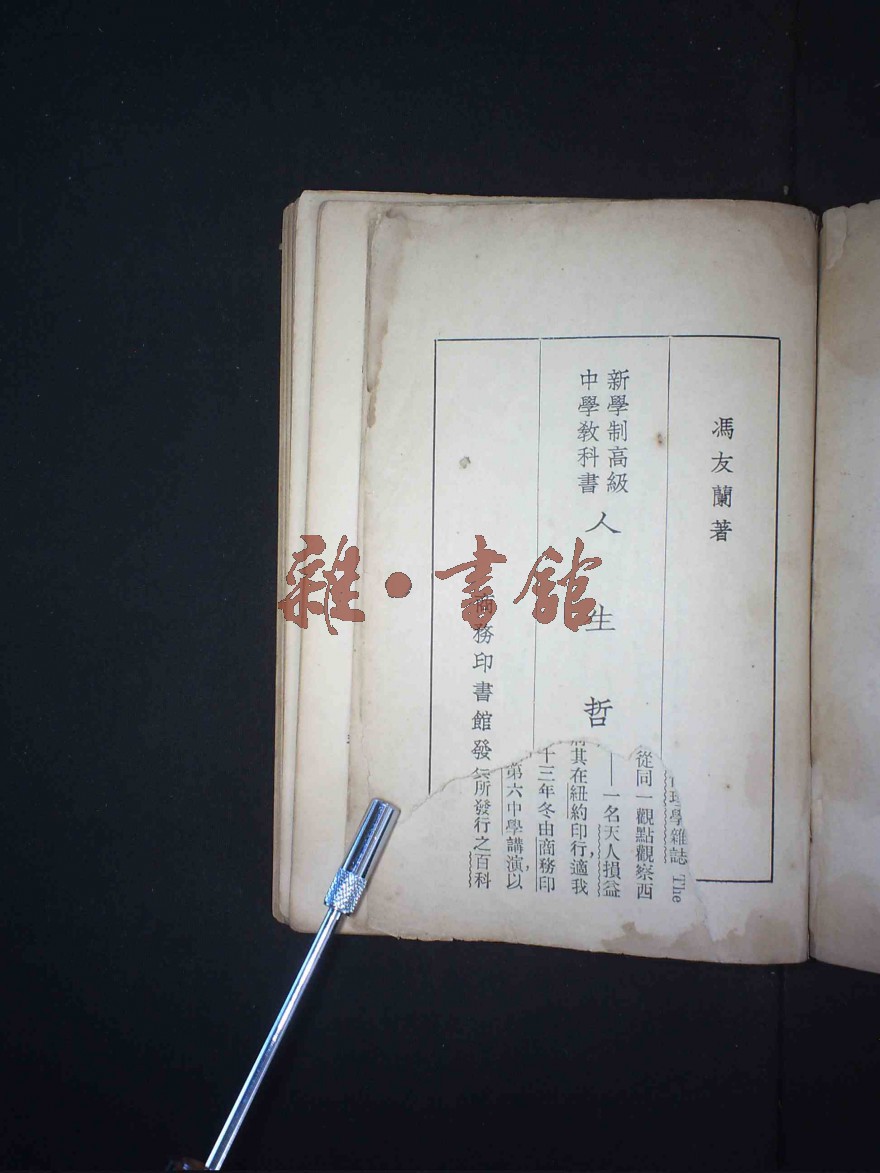 馮友蘭著
新學制高級
中學教科書
人生哲
商務印書館發
雜•書館
學雜誌 The
從同一觀點觀察西
——一名天人損益
其在紐約印行，適我
十三年冬由商務印
第六中學講演，以
所發行之百科